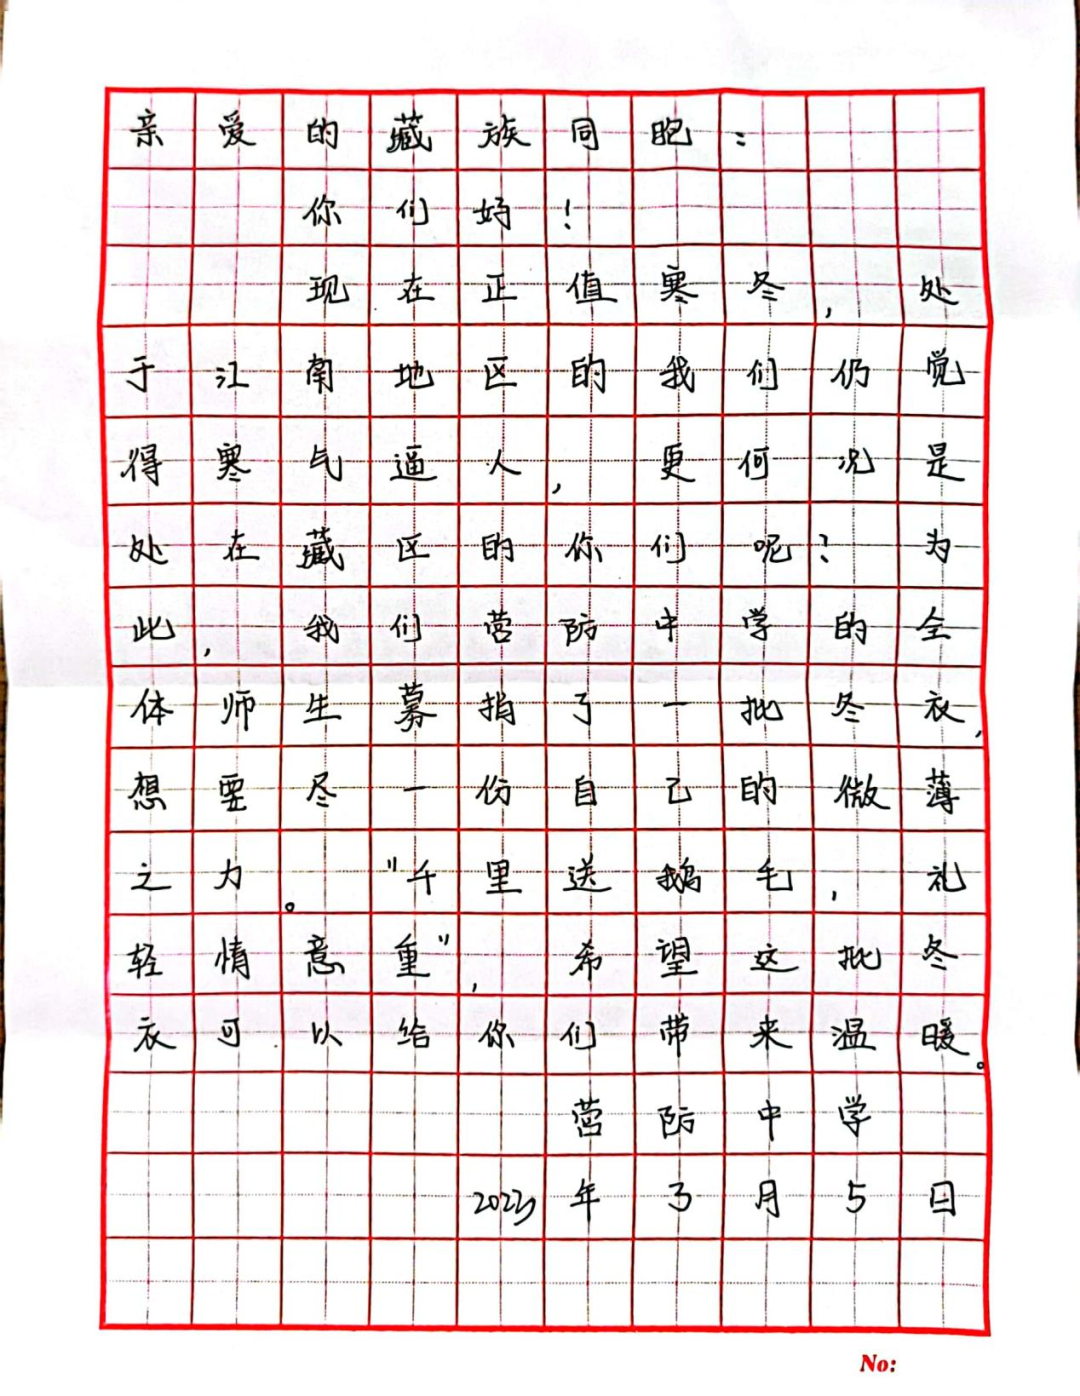 亲爱的藏族同胞：
你们好！
现在正值寒冬，处
于江南地区的我们仍觉
得寒气逼人，更何况是
处在藏区的你们呢？为
此，我们营防中学的全
体师生募捐了一批冬衣，
想要尽一份自己的微薄
之力。“千里送鹅毛，礼
轻情意重”，希望这批冬
衣可以给你们带来温暖。
营防中学
2023年3月5日
No: